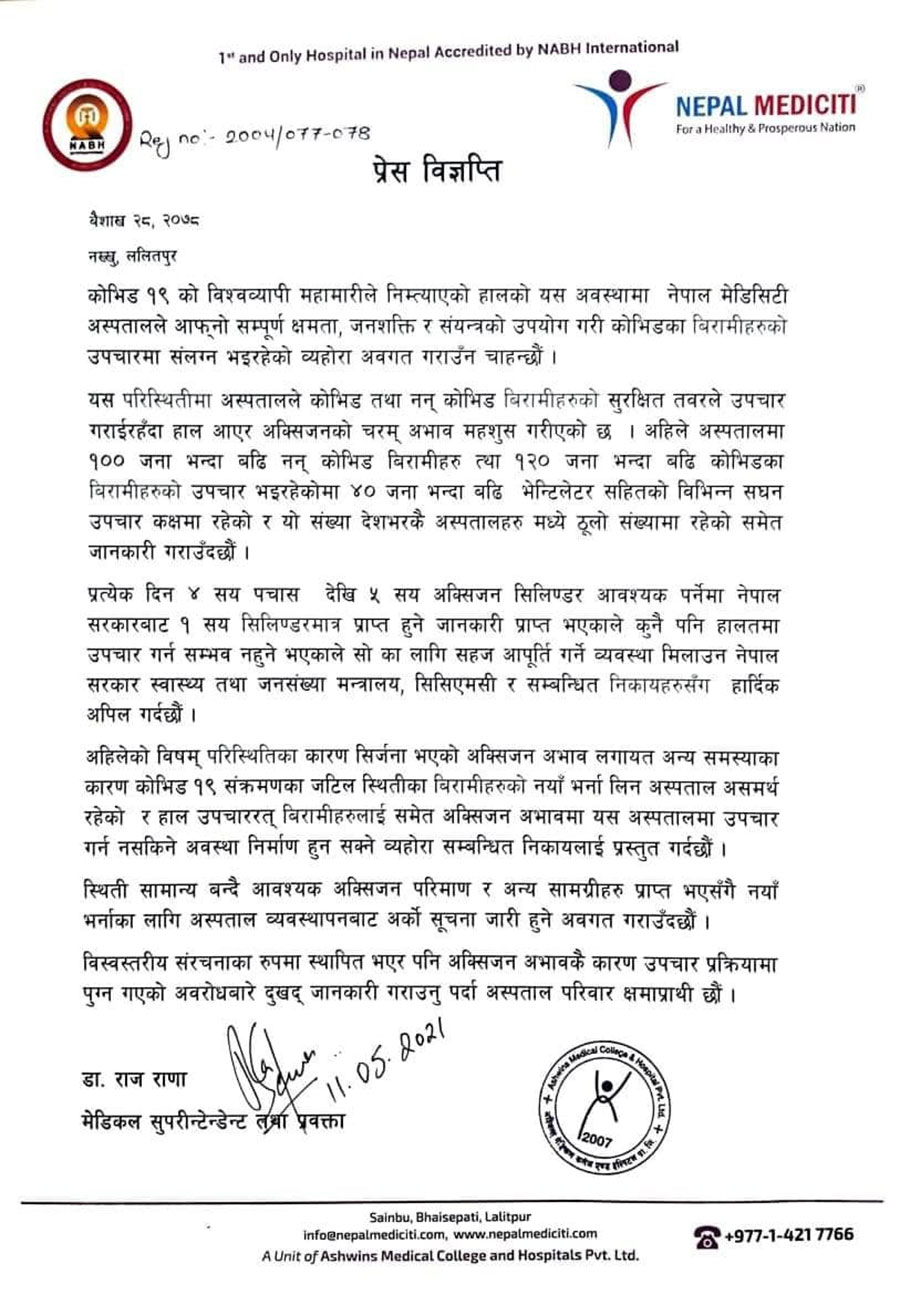 1st and Only Hospital in Nepal Accredited by NABH International
NABH
Reg no:- 2004/077-078
NEPAL MEDICITI®
For a Healthy & Prosperous Nation
प्रेस विज्ञप्ति
बैशाख २८, २०७८
नख्खु, ललितपुर
कोभिड १९ को विश्वव्यापी महामारीले निम्त्याएको हालको यस अवस्थामा नेपाल मेडिसिटी
अस्पतालले आफ्नो सम्पूर्ण क्षमता, जनशक्ति र संयन्त्रको उपयोग गरी कोभिडका बिरामीहरुको
उपचारमा संलग्न भइरहेको व्यहोरा अवगत गराउँन चाहन्छौं ।
यस परिस्थितीमा अस्पतालले कोभिड तथा नन् कोभिड बिरामीहरुको सुरक्षित तवरले उपचार
गराईरहँदा हाल आएर अक्सिजनको चरम् अभाव महशुस गरीएको छ । अहिले अस्पतालमा
१०० जना भन्दा बढि नन् कोभिड बिरामीहरु त्था १२० जना भन्दा बढि कोभिडका
बिरामीहरुको उपचार भइरहेकोमा ४० जना भन्दा बढि भेन्टिलेटर सहितको विभिन्न सघन
उपचार कक्षमा रहेको र यो संख्या देशभरकै अस्पतालहरु मध्ये ठूलो संख्यामा रहेको समेत
जानकारी गराउँदछौं ।
प्रत्येक दिन ४ सय पचास देखि ५ सय अक्सिजन सिलिण्डर आवश्यक पर्नेमा नेपाल
सरकारबाट १ सय सिलिण्डरमात्र प्राप्त हुने जानकारी प्राप्त भएकाले कुनै पनि हालतमा
उपचार गर्न सम्भव नहुने भएकाले सो का लागि सहज आपूर्ति गर्ने व्यवस्था मिलाउन नेपाल
सरकार स्वास्थ्य तथा जनसंख्या मन्त्रालय, सिसिएमसी र सम्बन्धित निकायहरुसँग हार्दिक
अपिल गर्दछौं ।
अहिलेको विषम् परिस्थितिका कारण सिर्जना भएको अक्सिजन अभाव लगायत अन्य समस्याका
कारण कोभिड १९ संक्रमणका जटिल स्थितीका बिरामीहरुको नयाँ भर्ना लिन अस्पताल असमर्थ
रहेको र हाल उपचाररत् बिरामीहरुलाई समेत अक्सिजन अभावमा यस अस्पतालमा उपचार
गर्न नसकिने अवस्था निर्माण हुन सक्ने व्यहोरा सम्बन्धित निकायलाई प्रस्तुत गर्दछौं ।
स्थिती सामान्य बन्दै आवश्यक अक्सिजन परिमाण र अन्य सामग्रीहरु प्राप्त भएसँगै नयाँ
भर्नाका लागि अस्पताल व्यवस्थापनबाट अर्को सूचना जारी हुने अवगत गराउँदछौं ।
विस्वस्तरीय संरचनाका रुपमा स्थापित भएर पनि अक्सिजन अभावकै कारण उपचार प्रक्रियामा
पुग्न गएको अवरोधबारे दुखद् जानकारी गराउनु पर्दा अस्पताल परिवार क्षमाप्रार्थी छौं ।
11.05.2021
डा. राज राणा
मेडिकल सुपरीन्टेन्डेन्ट तथा प्रवक्ता
Ashwins Medical College & Hospital Pvt. Ltd.
2007
Sainbu, Bhaisepati, Lalitpur
info@nepalmediciti.com, www.nepalmediciti.com
A Unit of Ashwins Medical College and Hospitals Pvt. Ltd.
+977-1-421 7766